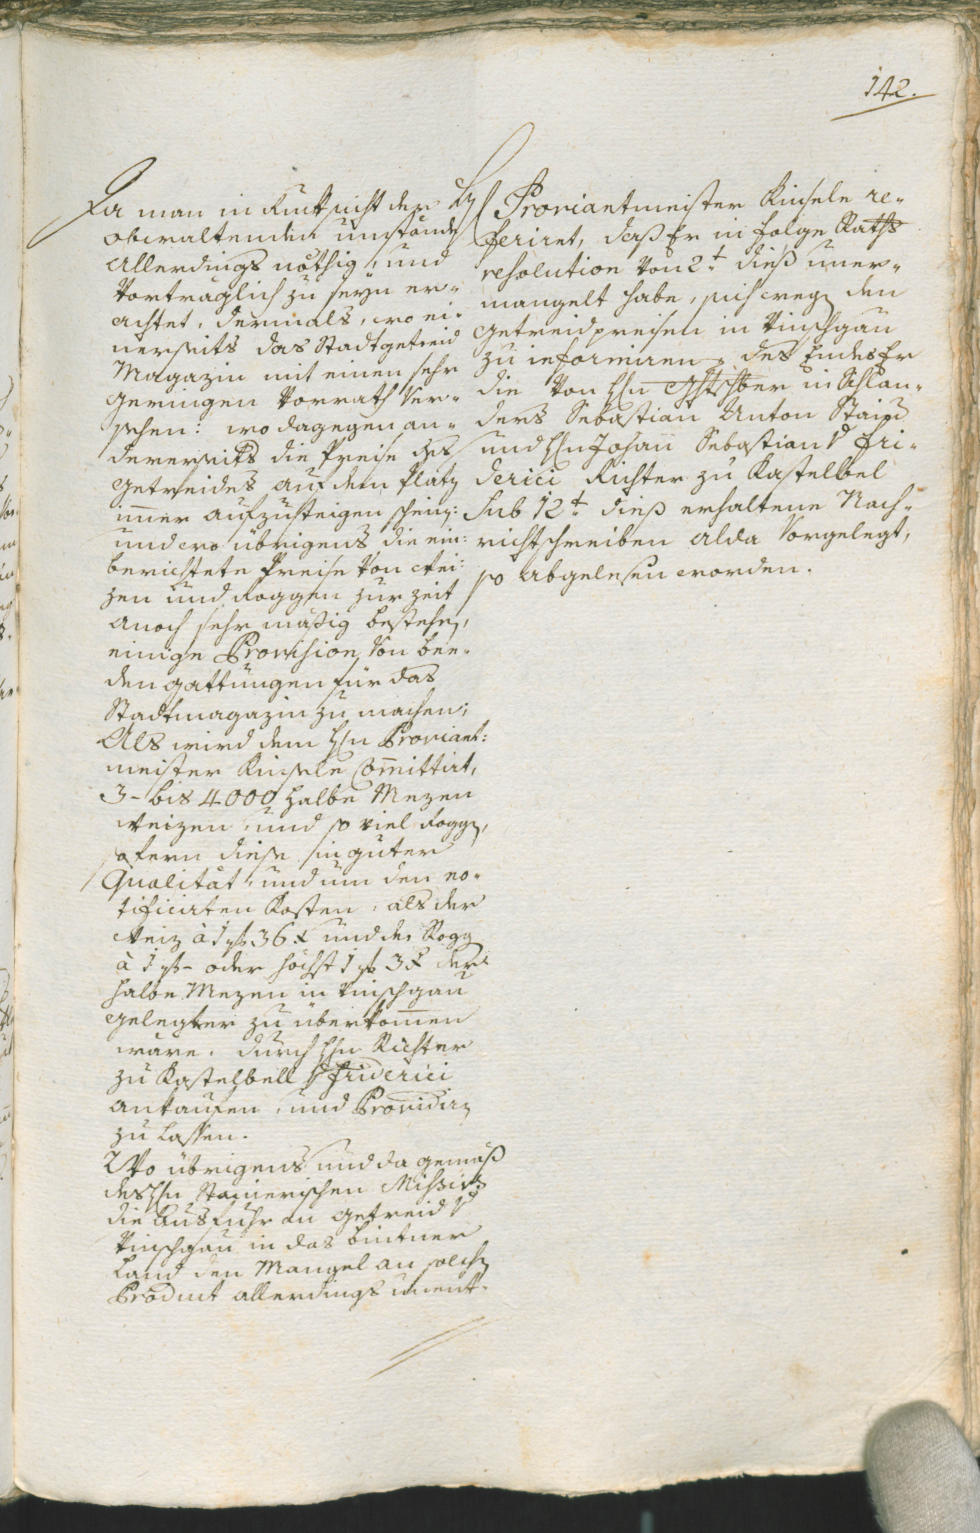 142.
Da man in Rucksicht der
obwaltenden umstände
Allerdings nöthig, und
Vorträglich zu seyn er-
achtet, dermals, wo ei-
nerseits das Stadtgetreid
Magazin mit einen sehr
geringen Vorrath Ver-
sehen: wo dagegen an-
dererseits die Preise des
Getreides auf dem Platz
immer aufzusteigen schein:
und wo übrigens die ein-
berichtete Preise von Wei-
zen und Roggen zur Zeit
annoch sehr mäßig bestehen,
einige Provision von bee-
den gattungen für das
Stadtmagazin zu machen;
Als wird dem Hn Proviant-
meister Kinsele Committirt,
3- bis 4000 halbe Mezen
Weizen, und so viel Roggen,
sofern diese in guter
Qualität, und um den no-
tificirten Kosten, als der
Weiz à 1 f 36 x und der Rogg
à 1 f - oder höchst 1 f 3 x der
halbe Mezen in Vinschgau
gelegter zu überkommen
wäre, durch Hn Richter
zu Kastelbell Friderici
ankaufen, und Providirn
zu lassen.
Wo übrigens und da gemäß
des Hn Stainerischen Missivs
die Ausfuhr an Getreid
Vinschgau in das Bintner
Land den Mangel an solchen
Product allerdings unent-
Hr Proviantmeister Kinsele re-
ferirt, daß Er in folge Raths
resolution von 2t dieß uner-
mangelt habe, sich wegen den
Getreidpreisen in Vinschgau
zu informiren, des Endes Er
die von Hn in Schlan-
ders Sebastian Anton Stainer
und Hn Johann Sebastian v Fri-
derici Richter zu Kastelbel
sub 12t dieß erhaltene Nach-
richtschreiben alda Vorgelegt,
so abgelesen worden.